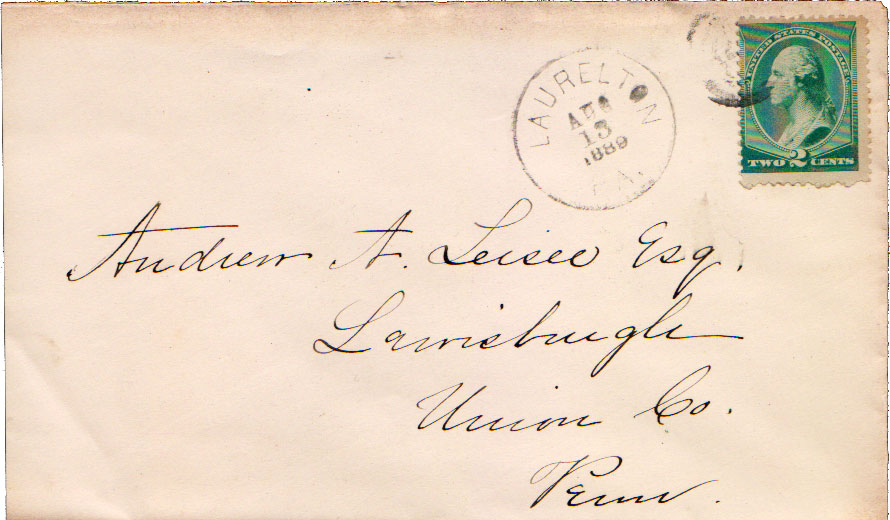 UNITED STATES POSTAGE
TWO 2 CENTS
LAURELTON
AUG
13
1889
PA.
Andrew A. Leisee Esq.
Lewisburgh
Union Co.
Penn.